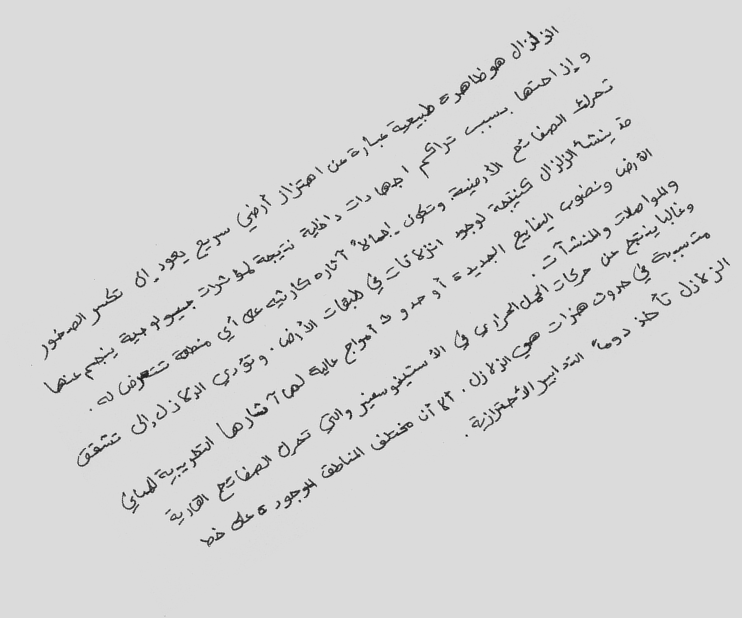 الزلزال هو ظاهرة طبيعية عبارة عن اهتزاز أرضي سريع يعود إلى تكسر الصخور
وإزاحتها بسبب تراكم اجهادات داخلية نتيجة لمؤثرات جيولوجية ينجم عنها
تحرك الصفائح الأرضية. وتكون إجمالا آثاره كارثية على أي منطقة تتعرض له.
قد ينشأ الزلزال كنتيجة لوجود انزلاقات في طبقات الأرض. وتؤدي الزلازل إلى تشقق
الأرض ونضوب الينابيع الجديدة أو حدوث أمواج عالية لها آثارها التخريبية للمباني
والمواصلات والمنشآت.
وغالبا ينتج عن حركات الحمل الحراري في الأستينوسفير والتي تحرك الصفائح القارية
متسببة في حدوث هزات هي الزلازل. ألا أن مختلف المناطق الموجودة على خط
الزلازل تأخذ دوماً التدابير الأحترازية.